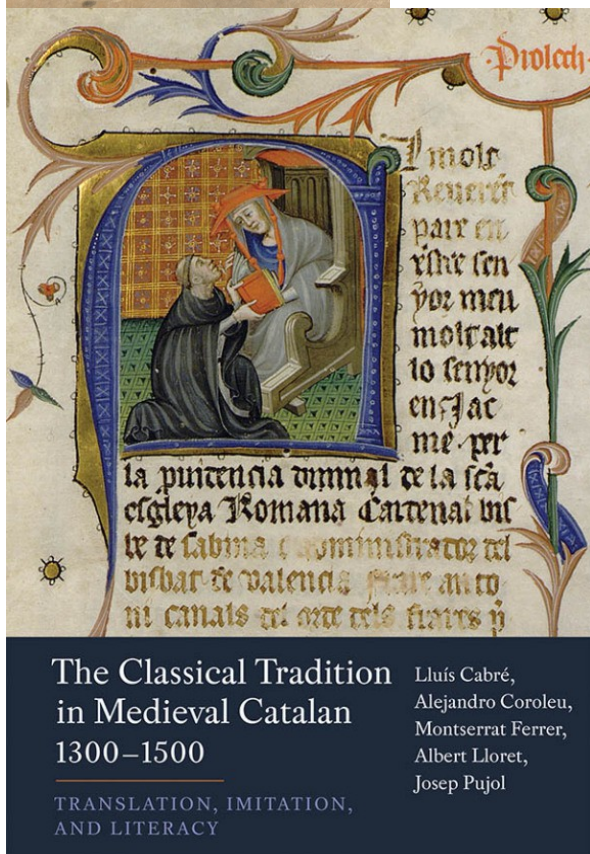 Prolech
l molt
Reuerēt
pare en
sen
yor meu
molt alt
lo senyor
en Jac
me per
la diuinal de la sc̄a
esgleya Romana Cardenal bis
be de Sabina e administrador del
bisbat de valencia frare anto
ni canals del orde dels frares p̄
The Classical Tradition
in Medieval Catalan
1300–1500
TRANSLATION, IMITATION,
AND LITERACY
Lluís Cabré,
Alejandro Coroleu,
Montserrat Ferrer,
Albert Lloret,
Josep Pujol